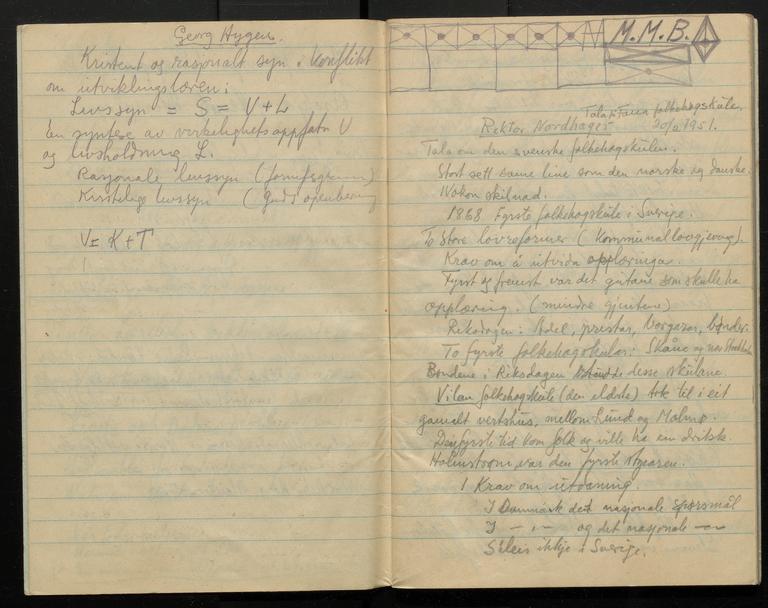 Georg Hygen.
Kristent og rasjonalt syn i konflikt
om utviklingslæren:
Livssyn = S = V + L
en syntese av verkelighetsoppfatn V
og livsholdning L.
Rasjonale livssyn (fornufsgrunn)
Kristelige livssyn (Guds openbering
V = K + T
M. M. B.
Tala i Fana folkehøgskule.
Rektor Nordhagen 1951.
Tala om den svenske folkehøgskulen.
Stort sett same line som den norske og danske.
Nokon skilnad.
1868 Fyrste folkehøgskule i Sverige.
To store lovreformer (Kommunallovgjevng).
Krav om å utvida opplæringa.
Fyrst og fremst var det gutane som skulle ha
opplæring. (mindre gjentene)
Riksdagen: Adel, prestar, borgarar, bønder.
To fyrste folkehøgskular: Skåne og
Bøndene i Riksdagen desse skulane.
folkehøgskule (den eldste) tok til i eit
gamalt vertshus, mellom Lund og Malmø.
Den fyrste tid kom folk og ville ha ein drikk.
Holmstrøm var den fyrste styraren.
1 Krav om utdaning
I Danmark det nasjonale spørsmål
I — " — og det nasjonale — " —
Såleis ikkje i Sverige.